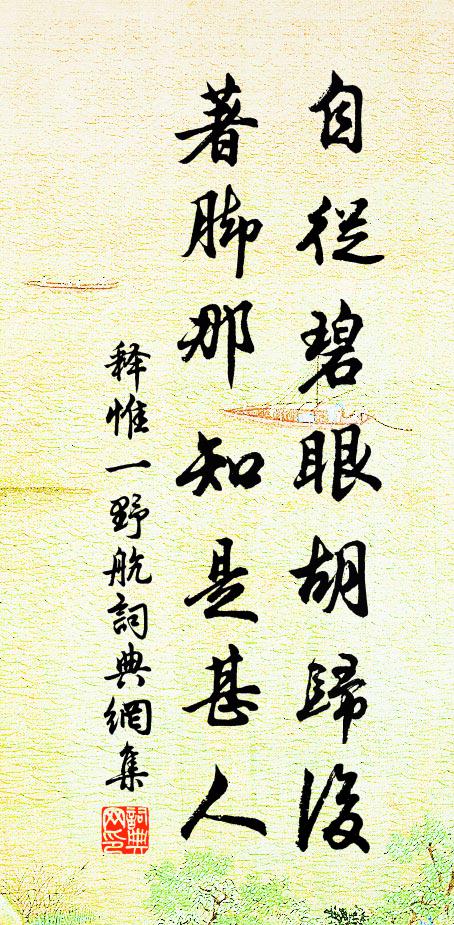 自從碧眼胡歸後
著脚那知是甚人
释惟一野航詞典網集
詞典网印